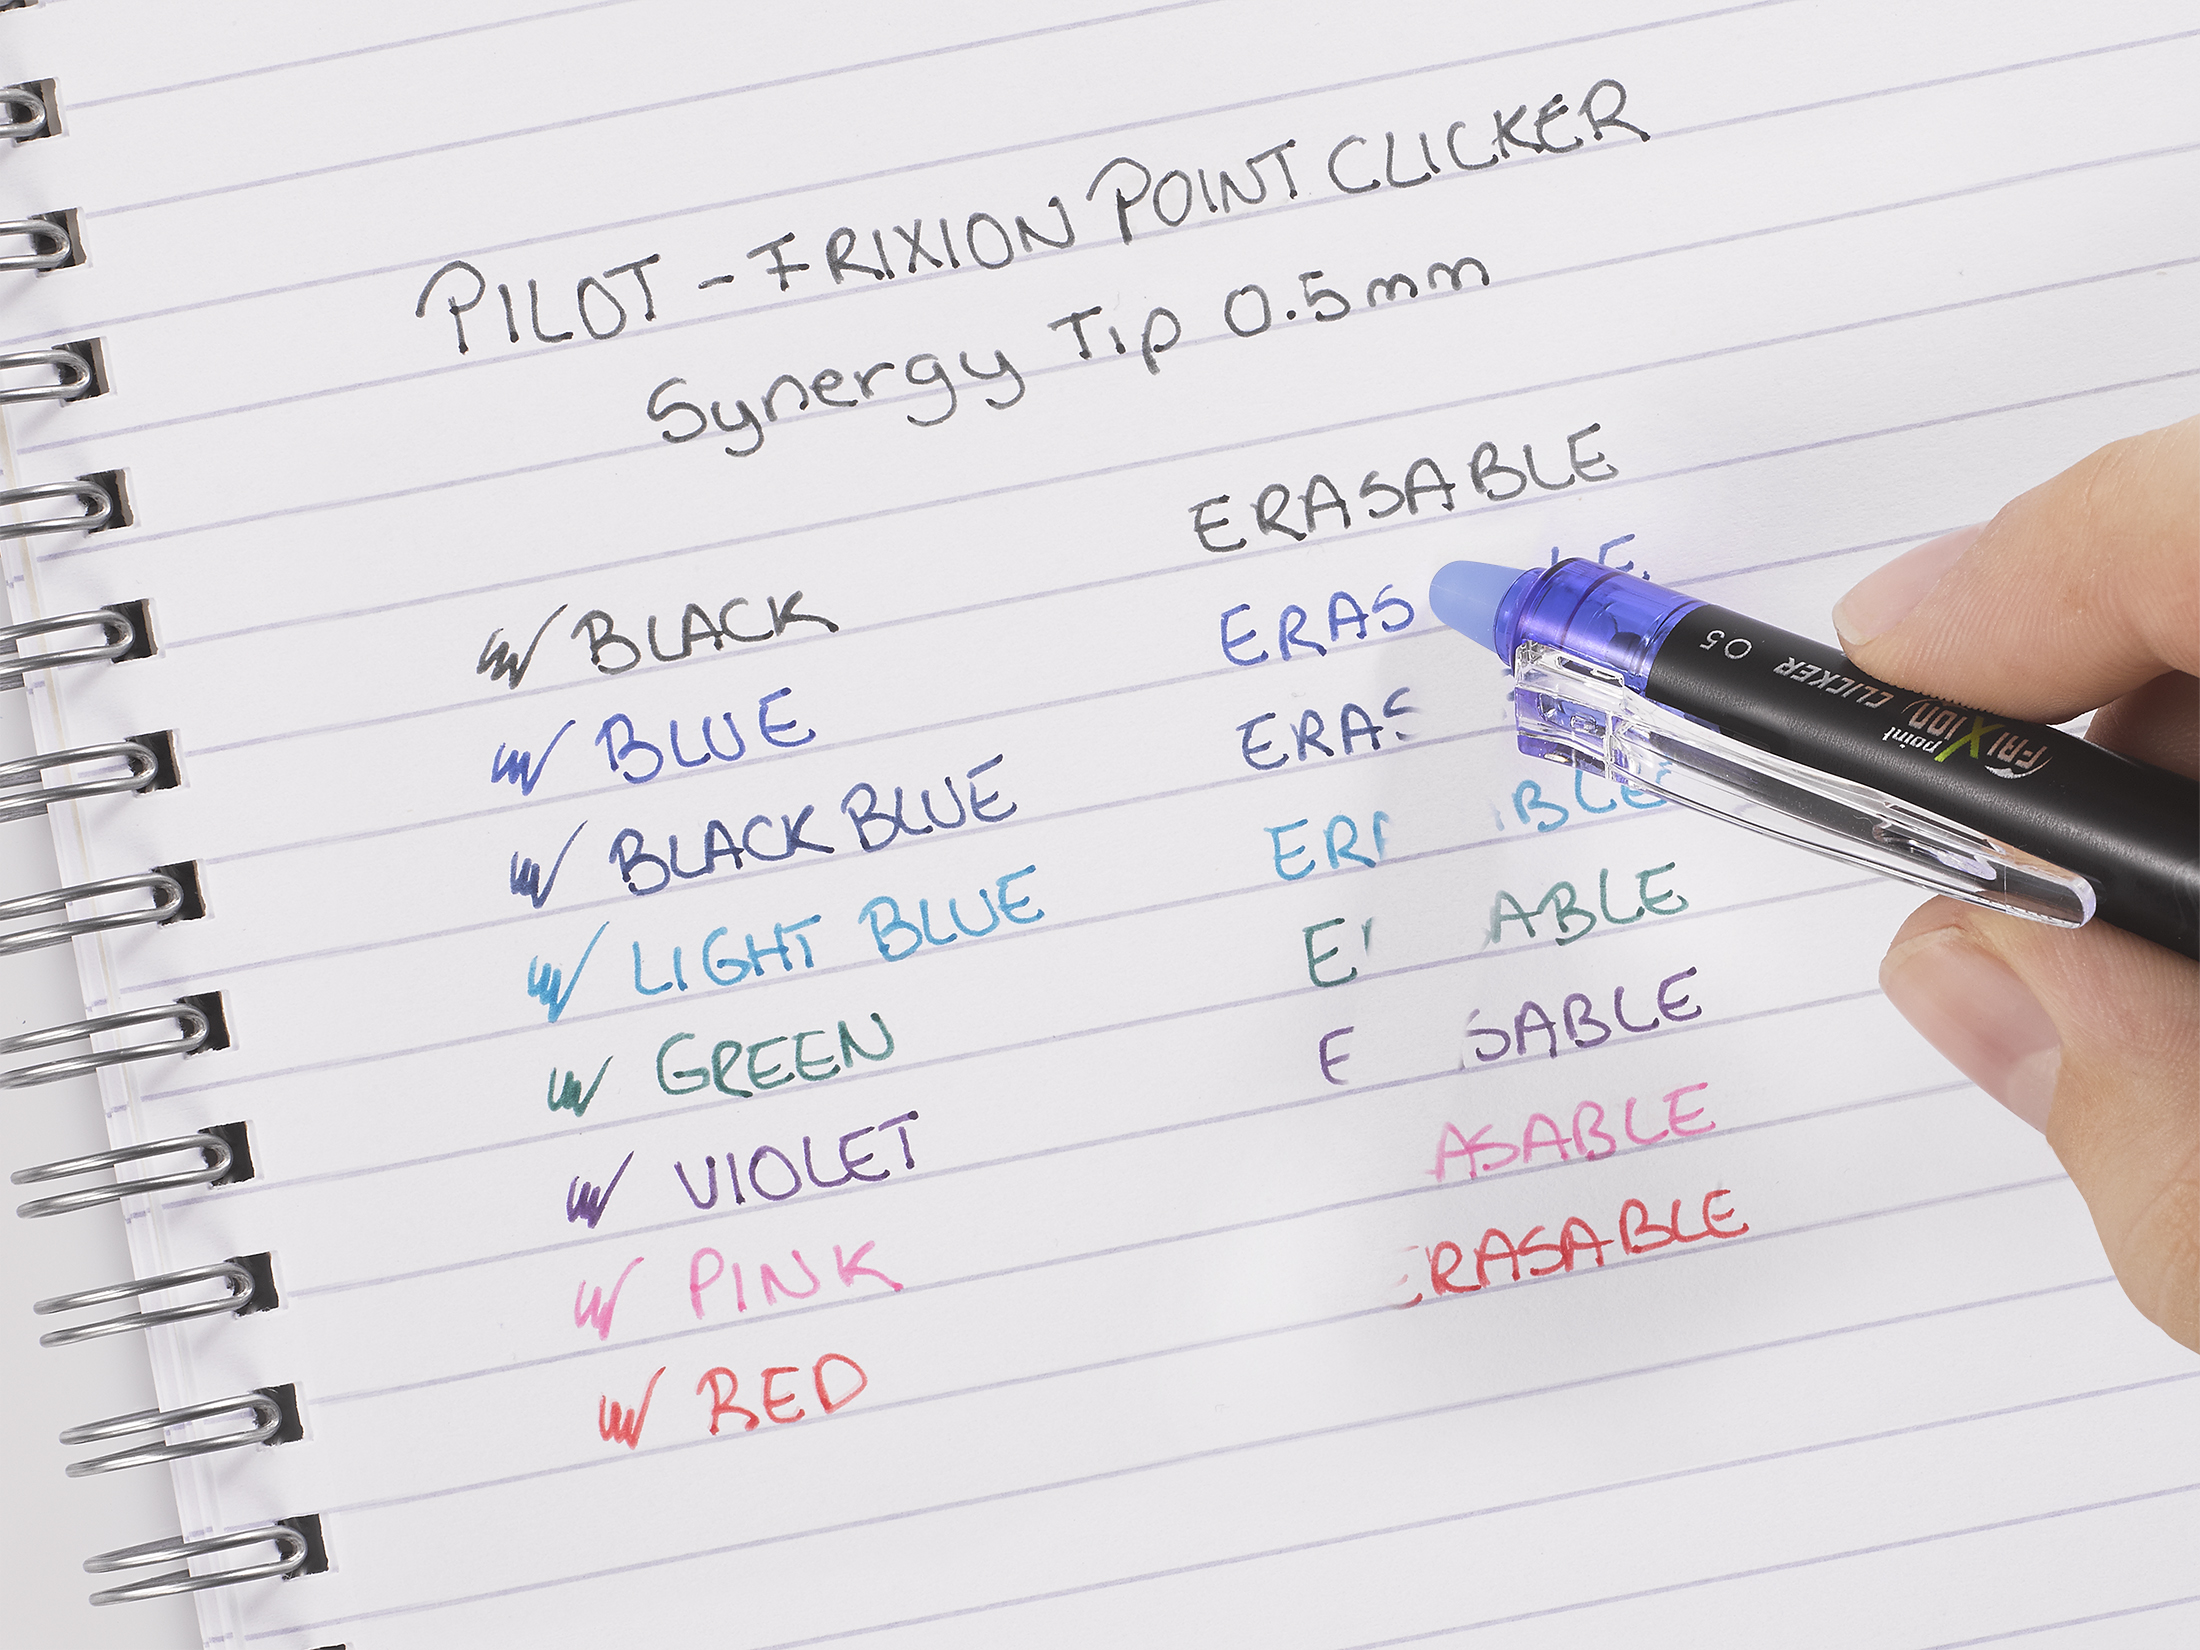 PILOT - FRIXION POINT CLICKER
Synergy Tip 0.5mm
ERASABLE
BLACK
BLUE
ERAS LE
BLACK BLUE
ERAS
LIGHT BLUE
ER BLE
GREEN
E ABLE
VIOLET
E SABLE
PINK
ASABLE
RED
ERASABLE
FRIXION point CLICKER 05